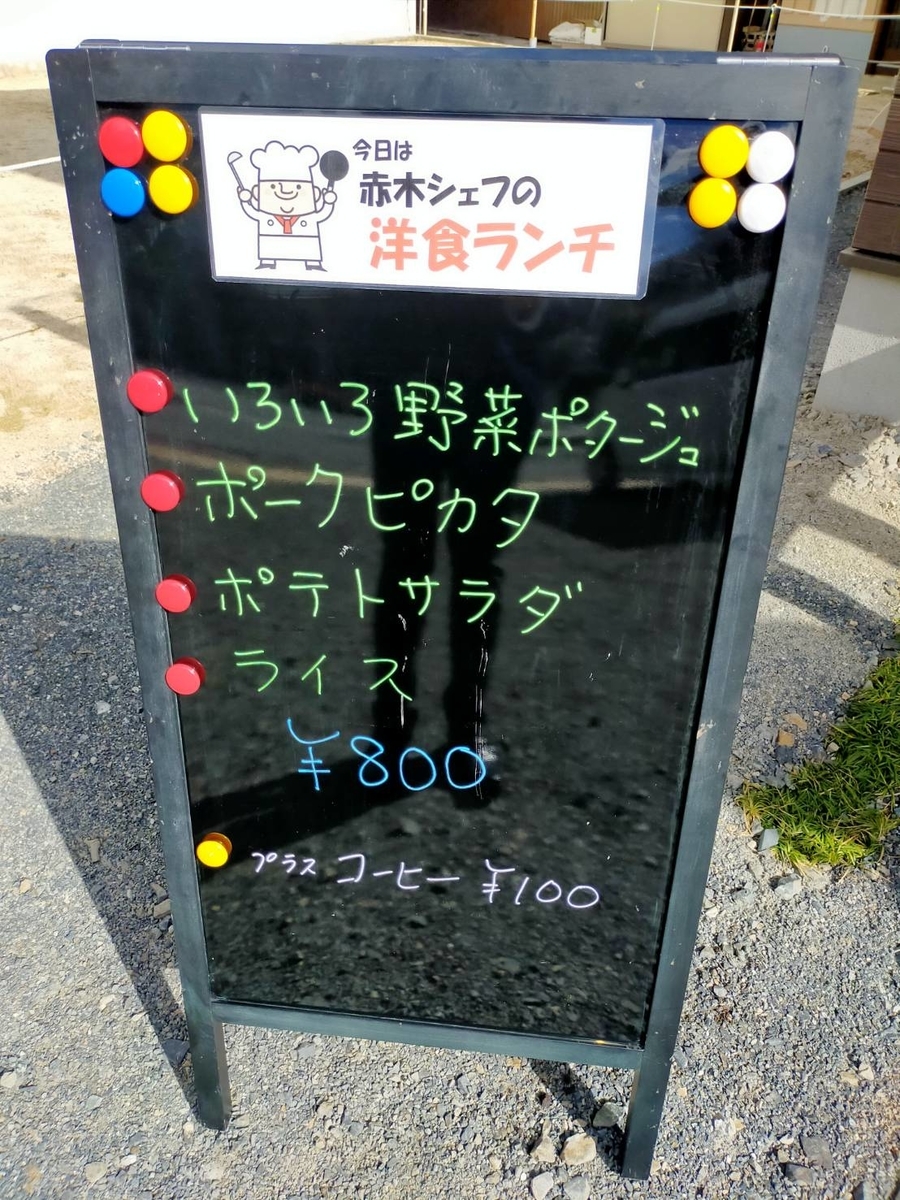 今日は
赤木シェフの
洋食ランチ
いろいろ野菜ポタージュ
ポークピカタ
ポテトサラダ
ライス
¥800
プラス コーヒー ¥100